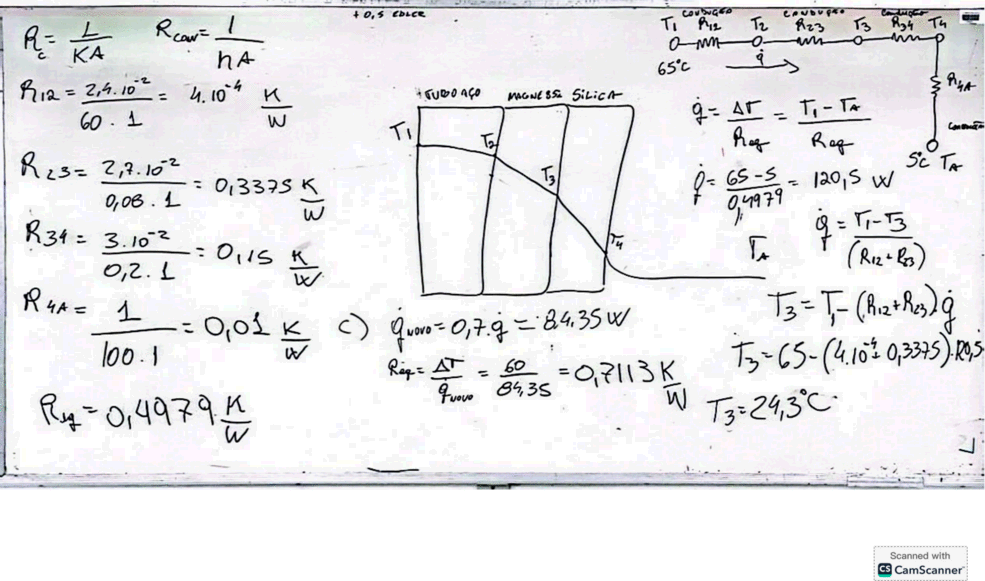 + 0,5 EDLER
R_c = L / KA
R_conv = 1 / hA
R12 = 2,4.10^-2 / 60 . 1 = 4.10^-4 K/W
R23 = 2,7.10^-2 / 0,08 . 1 = 0,3375 K/W
R34 = 3.10^-2 / 0,2 . 1 = 0,15 K/W
R4A = 1 / 100 . 1 = 0,01 K/W
Req = 0,4979 K/W
TUBO AÇO MAGNESSE SILICA
T1
T2
T3
T4
TA
C) q̇novo = 0,7.q̇ = 84.35 W
Req = ΔT / q̇novo = 60 / 84,35 = 0,7113 K/W
CONDUÇÃO CONDUÇÃO CONDUÇÃO
T1 R12 T2 R23 T3 R34 T4
65°C q̇
R4A
5°C TA
q̇ = ΔT / Req = T1 - TA / Req
q̇ = 65 - 5 / 0,4979 = 120,5 W
q̇ = T1 - T3 / (R12 + R23)
T3 = T1 - (R12 + R23) q̇
T3 = 65 - (4.10^-4 + 0,3375).120,5
T3 = 24,3°C
Scanned with
CS CamScanner